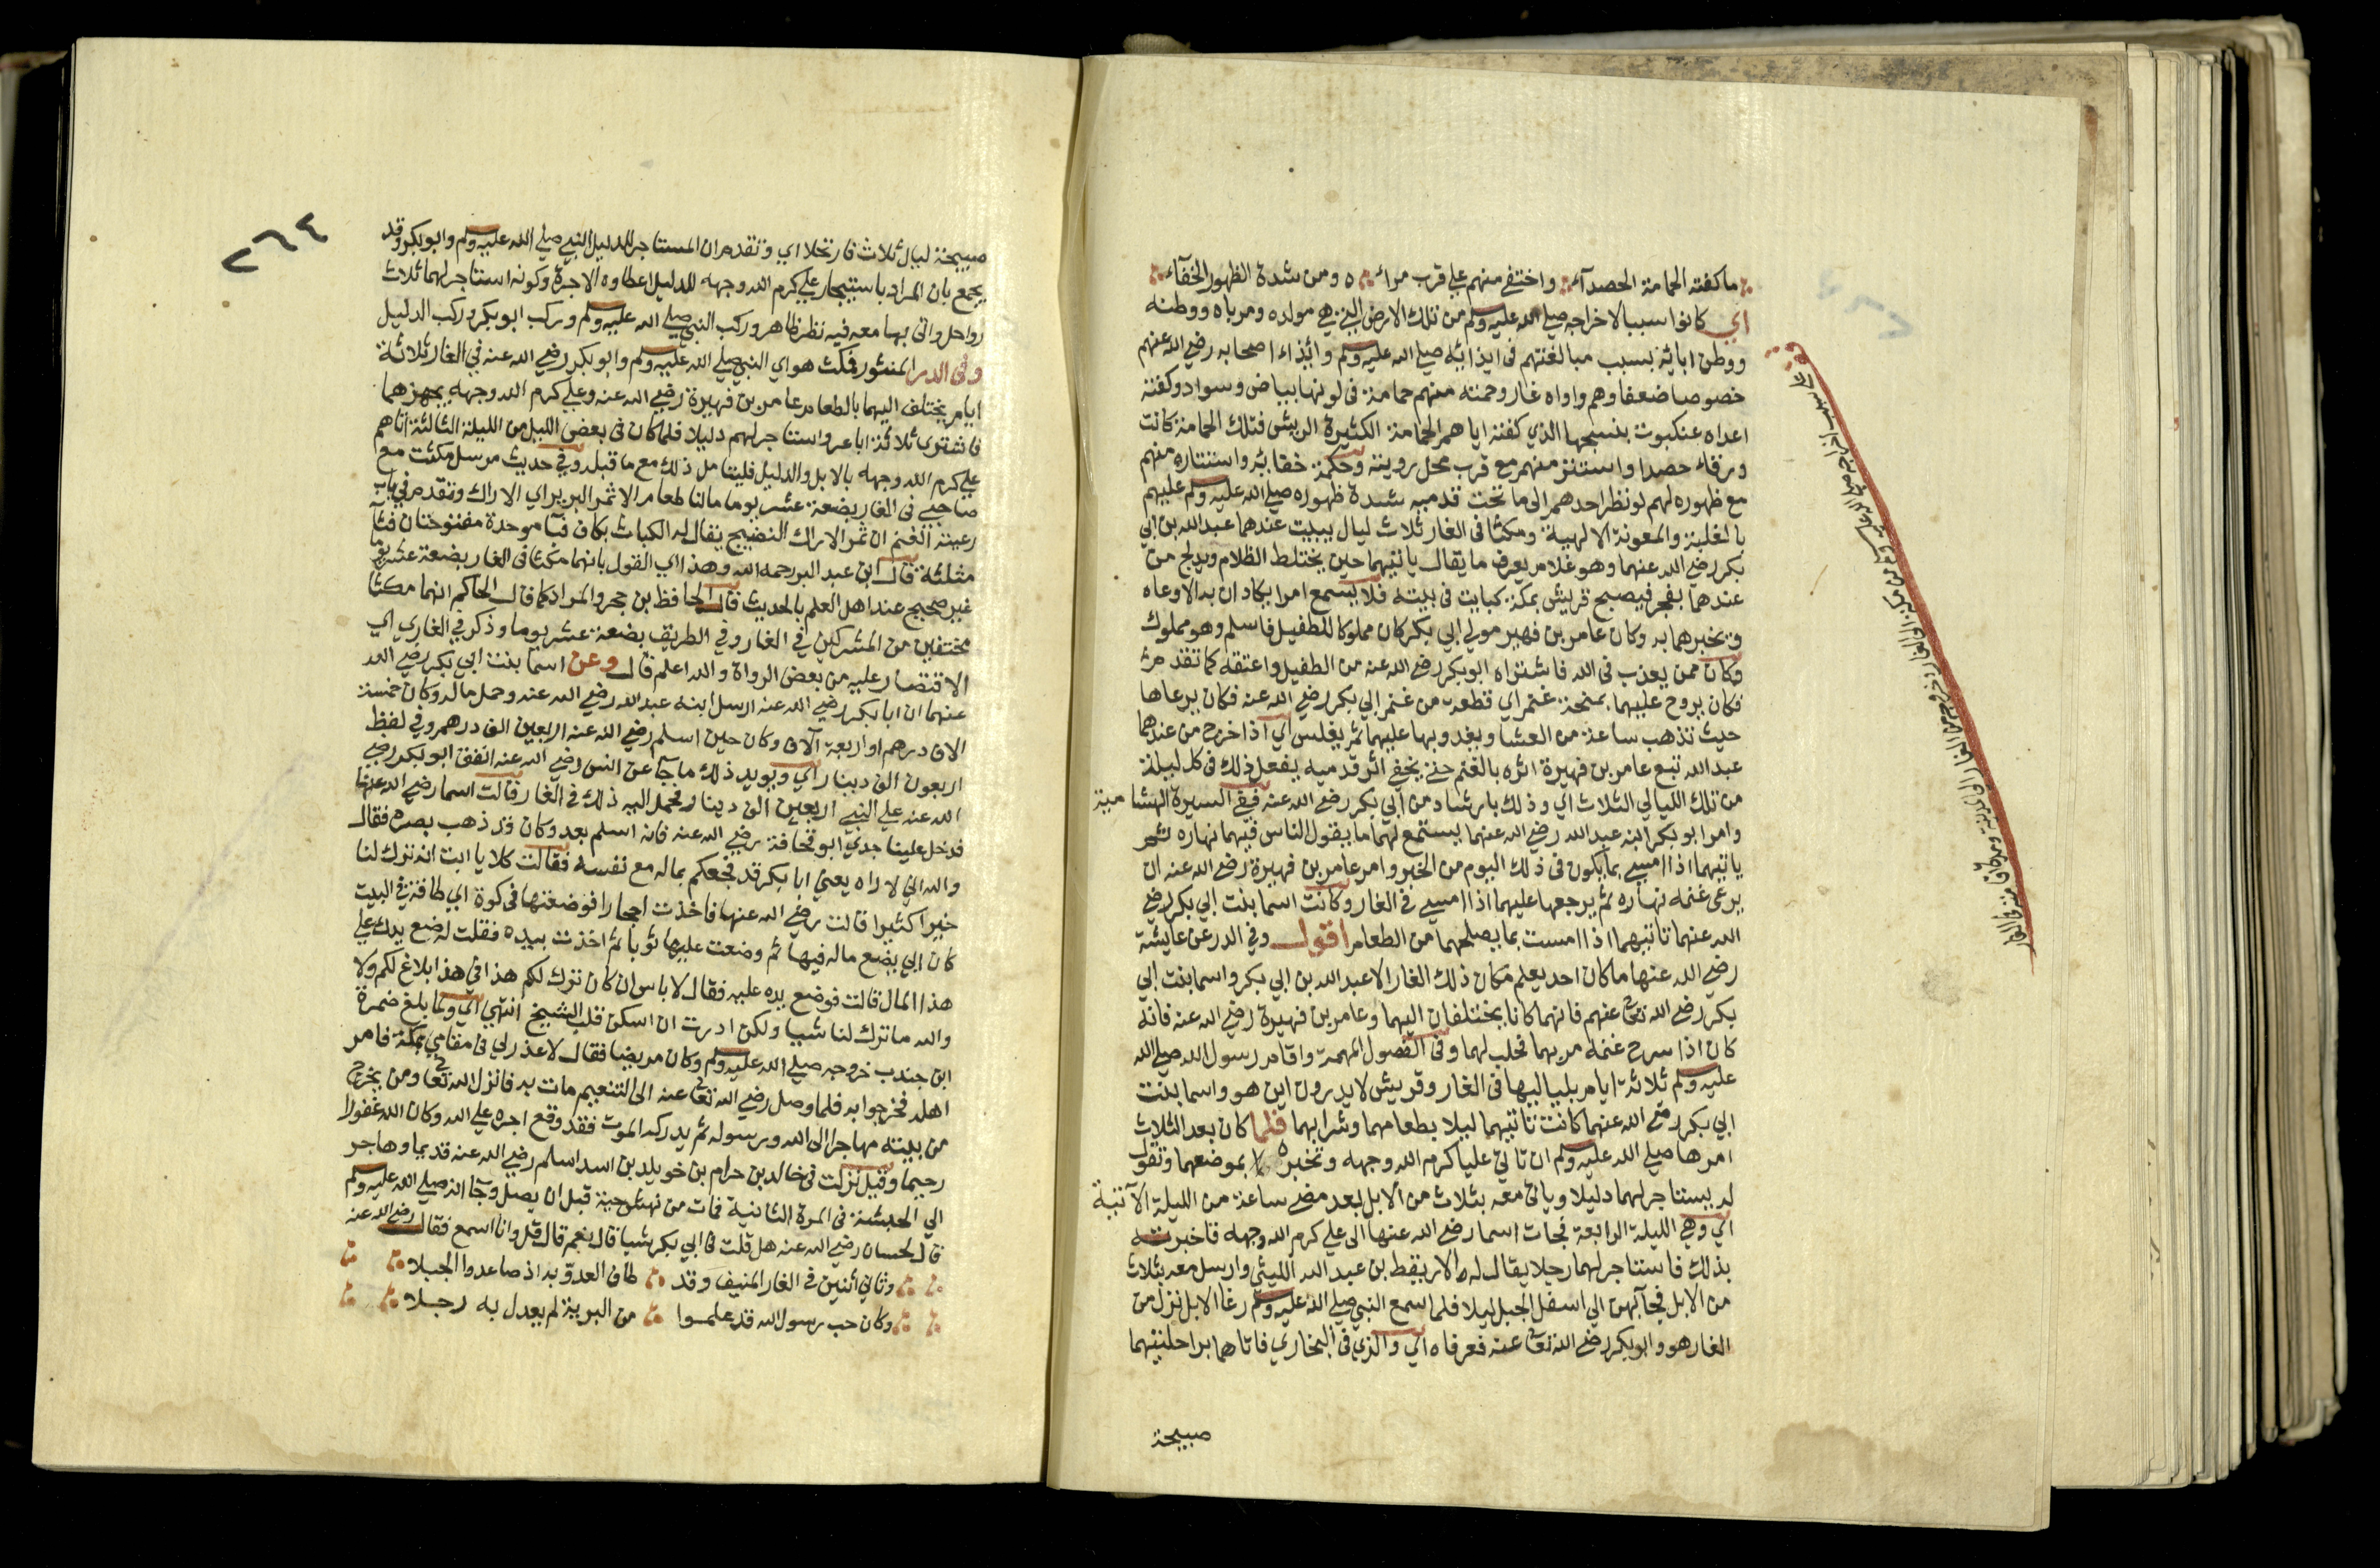 ما كفته الحمامة الحصدآء واختفى منهم على قرب مرآه ومن شدة الظهور الخفآء
اي كانوا سببا لاخراجه صلى الله عليه وسلم من تلك الارض التي هي مولده ومرباه ووطنه
ووطن ابائه بسبب مبالغتهم فى ايذائه صلى الله عليه وسلم وايذاء اصحابه رضي الله عنهم
خصوصا ضعفاوهم واواه غار وحمته منهم حمامة فى لونها بياض وسواد وكفته
اعداه عنكبوت بنسجها الذي كفته اياهم الحمامة الكثيرة الريش فتلك الحمامة كانت
ورقاء حصدا واستتر منهم مع قرب محل رويته وحكمة خفائه واستتاره منهم
مع ظهوره لهم لو نظر احدهم الى ما تحت قدميه شدة ظهوره صلى الله عليه وسلم عليهم
بالغلبة والمعونة الالهية ومكثا فى الغار ثلاث ليال يبيت عندهما عبد الله بن ابي
بكر رضي الله عنهما وهو غلام يعرف ما يقال ياتيهما حين يختلط الظلام ويدلج من
عندهما بفجر فيصبح قريش بمكة كبايت فى بيته فلا يسمع امرا يكادان به الا وعاه
ويخبرهما به وكان عامر بن فهير مولى ابي بكر كان مملوكا للطفيل فاسلم وهو مملوك
وكان ممن يعذب فى الله فاشتراه ابو بكر رضي الله عنه من الطفيل واعتقه كما تقدم
فكان يروح عليهما بمنحة غنم اي قطعة من غنم ابي بكر رضي الله عنه فكان يرعاها
حيث تذهب ساعة من العشا ويغدو بها عليهما ثم يغلس اي اذا خرج من عندهما
عبد الله تبع عامر بن فهيرة اثره بالغنم حتى يخفي اثر قدميه يفعل ذلك فى كل ليلة
من تلك الليالي الثلاث اي وذلك بارشاد من ابي بكر رضي الله عنه ففي السيرة الهشامية
وامر ابو بكر ابنه عبد الله رضي الله عنهما يستمع لهما ما يقول الناس فيهما نهاره ثم
ياتيهما اذا امسى بما يكون فى ذلك اليوم من الخبر وامر عامر بن فهيرة رضي الله عنه ان
يرعى غنمه نهاره ثم يرجعها عليهما اذا امسى فى الغار وكانت اسما بنت ابي بكر رضي
الله عنهما تاتيهما اذا امست بما يصلحهما من الطعام اقول وفي الدر عن عايشة
رضي الله عنها ما كان احد يعلم مكان ذلك الغار الا عبد الله بن ابي بكر واسما بنت ابي
بكر رضي الله تعالى عنهم فانهما كانا يختلفان اليهما وعامر بن فهيرة رضي الله عنه فانه
كان اذا سرح غنمه مر بهما فحلب لهما وفى الفصول المهمة واقام رسول الله صلى الله
عليه وسلم ثلاثة ايام بلياليها فى الغار وقريش لا يدرون اين هو واسما بنت
ابي بكر رضي الله عنهما كانت تاتيهما ليلا بطعامهما وشرابهما فلما كان بعد الثلاث
امرها صلى الله عليه وسلم ان تاتي عليا كرم الله وجهه وتخبره بموضعهما وتقول
له يستاجر لهما دليلا وياتي معه بثلاث من الابل بعد مضي ساعة من الليلة الآتية
اي وهي الليلة الرابعة فجات اسما رضي الله عنها الى علي كرم الله وجهه فاخبرته
بذلك فاستاجر لهما رجلا يقال له الاريقط بن عبد الله الليثي وارسل معه بثلاث
من الابل فجآ بهن الى اسفل الجبل ليلا فلما سمع النبي صلى الله عليه وسلم رغا الابل نزل من
الغار هو وابو بكر رضي الله تعالى عنه فعرفاه اي والذي فى البخاري فاتاهما براحلتيهما
صبيحة
٢٦٤
صبيحة ليال ثلاث فارتحلا اي وتقدم ان المستاجر للدليل النبي صلى الله عليه وسلم وابو بكر وقد
يجمع بان المراد باستيجار علي كرم الله وجهه للدليل اعطاوه الاجرة وكونه استاجر لهما ثلاث
رواحل واتى بها معه فيه نظر ظاهر وركب النبي صلى الله عليه وسلم وركب ابو بكر وركب الدليل
وفى الدر المنثور فمكث هو اي النبي صلى الله عليه وسلم وابو بكر رضي الله عنه فى الغار ثلاثة
ايام يختلف اليهما بالطعام عامر بن فهيرة رضي الله عنه وعلي كرم الله وجهه يجهزهما
فاشترى ثلاثة اباعر واستاجر لهم دليلا فلما كان فى بعض الليل من الليلة الثالثة اتاهم
علي كرم الله وجهه بالابل والدليل فليتامل ذلك مع ما قبله وفي حديث مرسل مكثت مع
صاحبي فى الغار بضعة عشر يوما مالنا طعام الا ثمر البرير اي الاراك وتقدم في باب
رعيته الغنم ان ثمر الاراك النضيج يقال له الكباث بكاف فبآ موحدة مفتوحتان فثآ
مثلثة قال ابن عبد البر رحمه الله وهذا اي القول بانهما مكثا فى الغار بضعة عشر يوما
غير صحيح عند اهل العلم بالحديث قال الحافظ بن حجر والمراد كما قال الحاكم انهما مكثا
مختفيين من المشركين في الغار وفي الطريق بضعة عشر يوما وذكر في الغار اي
الاقتصار عليه من بعض الرواة والله اعلم قال وعن اسما بنت ابي بكر رضي الله
عنهما ان ابا بكر رضي الله عنه ارسل ابنه عبد الله رضي الله عنه وحمل ماله وكان خمسة
الاف درهم او اربعة آلاف وكان حين اسلم رضي الله عنه اربعين الف درهم وفي لفظ
اربعون الف دينار اي ويويد ذلك ما جآ عن انس رضي الله عنه انفق ابو بكر رضي
الله عنه على النبي اربعين الف دينار فحمل اليه ذلك فى الغار قالت اسما رضي الله عنها
فدخل علينا جدي ابو قحافة رضي الله عنه فانه اسلم بعد وكان قد ذهب بصره فقال
والله اني لاراه يعني ابا بكر قد فجعكم بماله مع نفسه فقالت كلا يا ابت انه ترك لنا
خيرا كثيرا قالت رضي الله عنها فاخذت احجارا فوضعتها فى كوة اي طاقة في البيت
كان ابي يضع ماله فيها ثم وضعت عليها ثوبا ثم اخذت بيده فقلت له ضع يدك على
هذا المال قالت فوضع يده عليه فقال لا باس ان كان ترك لكم هذا في هذا بلاغ لكم ولا
والله ما ترك لنا شيا ولكن اردت ان اسكن قلب الشيخ انتهى اي ولما بلغ ضمرة
ابن جندب خروجه صلى الله عليه وسلم وكان مريضا فقال لا عذر لي فى مقامي بمكة فامر
اهله فخرجوا به فلما وصل رضي الله تعالى عنه الى التنعيم مات به فانزل الله تعالى ومن يخرج
من بيته مهاجرا الى الله ورسوله ثم يدركه الموت فقد وقع اجره على الله وكان الله غفورا
رحيما وقيل نزلت فى خالد بن حزام بن خويلد بن اسد اسلم رضي الله عنه قديما وهاجر
الى الحبشة فى المرة الثانية فمات من نهش حية قبل ان يصل وجآ انه صلى الله عليه وسلم
قال لحسان رضي الله عنه هل قلت فى ابي بكر شيا قال نعم قال قل وانا اسمع فقال رضي الله عنه
وثاني اثنين فى الغار المنيف وقد طاف العدو به اذ صاعدوا الجبلا
وكان حب رسول الله قد علموا من البرية لم يعدل به رجلا